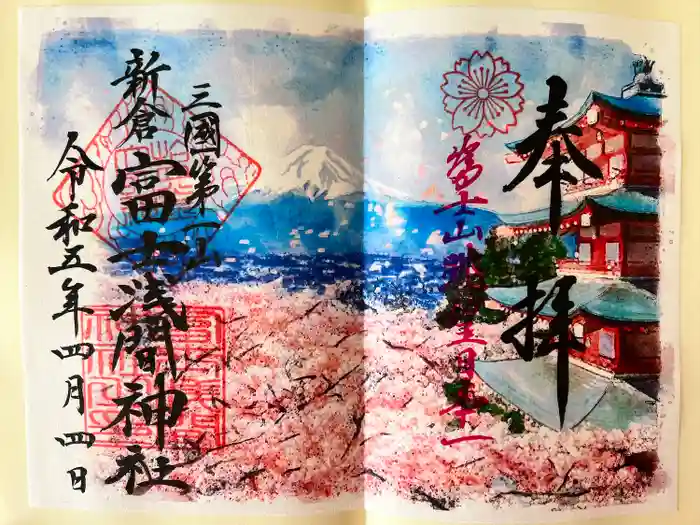 奉拝
三國第一山
新倉富士浅間神社
令和五年四月四日